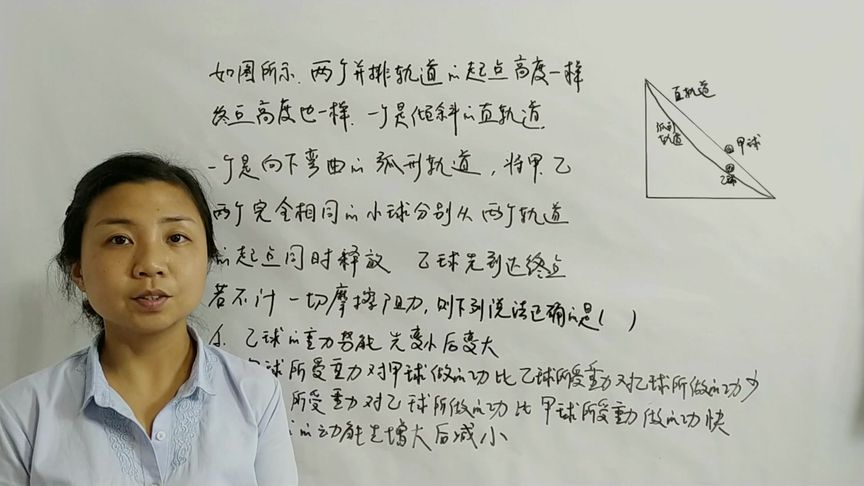 如图所示.两个并排轨道的起点高度一样
终点高度也一样.一个是倾斜的直轨道.
一个是向下弯曲的弧形轨道,将甲.乙
两个完全相同的小球分别从两个轨道
的起点同时释放 乙球先到达终点
若不计一切摩擦阻力,则下列说法正确的是( )
A. 乙球的重力势能先变小后变大
球所受重力对甲球做的功比乙球所受重力对乙球所做的功少
所受重力对乙球所做的功比甲球所受重力做的功快
的动能先增大后减小
直轨道
弧形
轨道
甲球
乙球